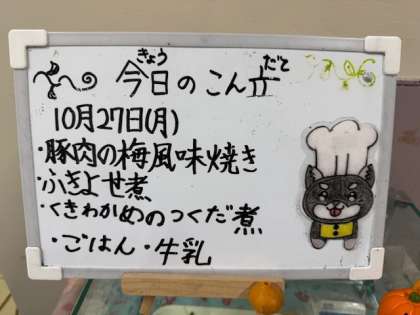 今日のこん立
きょう だて
10月27日(月)
・豚肉の梅風味焼き
・ふきよせ煮
・くきわかめのつくだ煮
・ごはん・牛乳